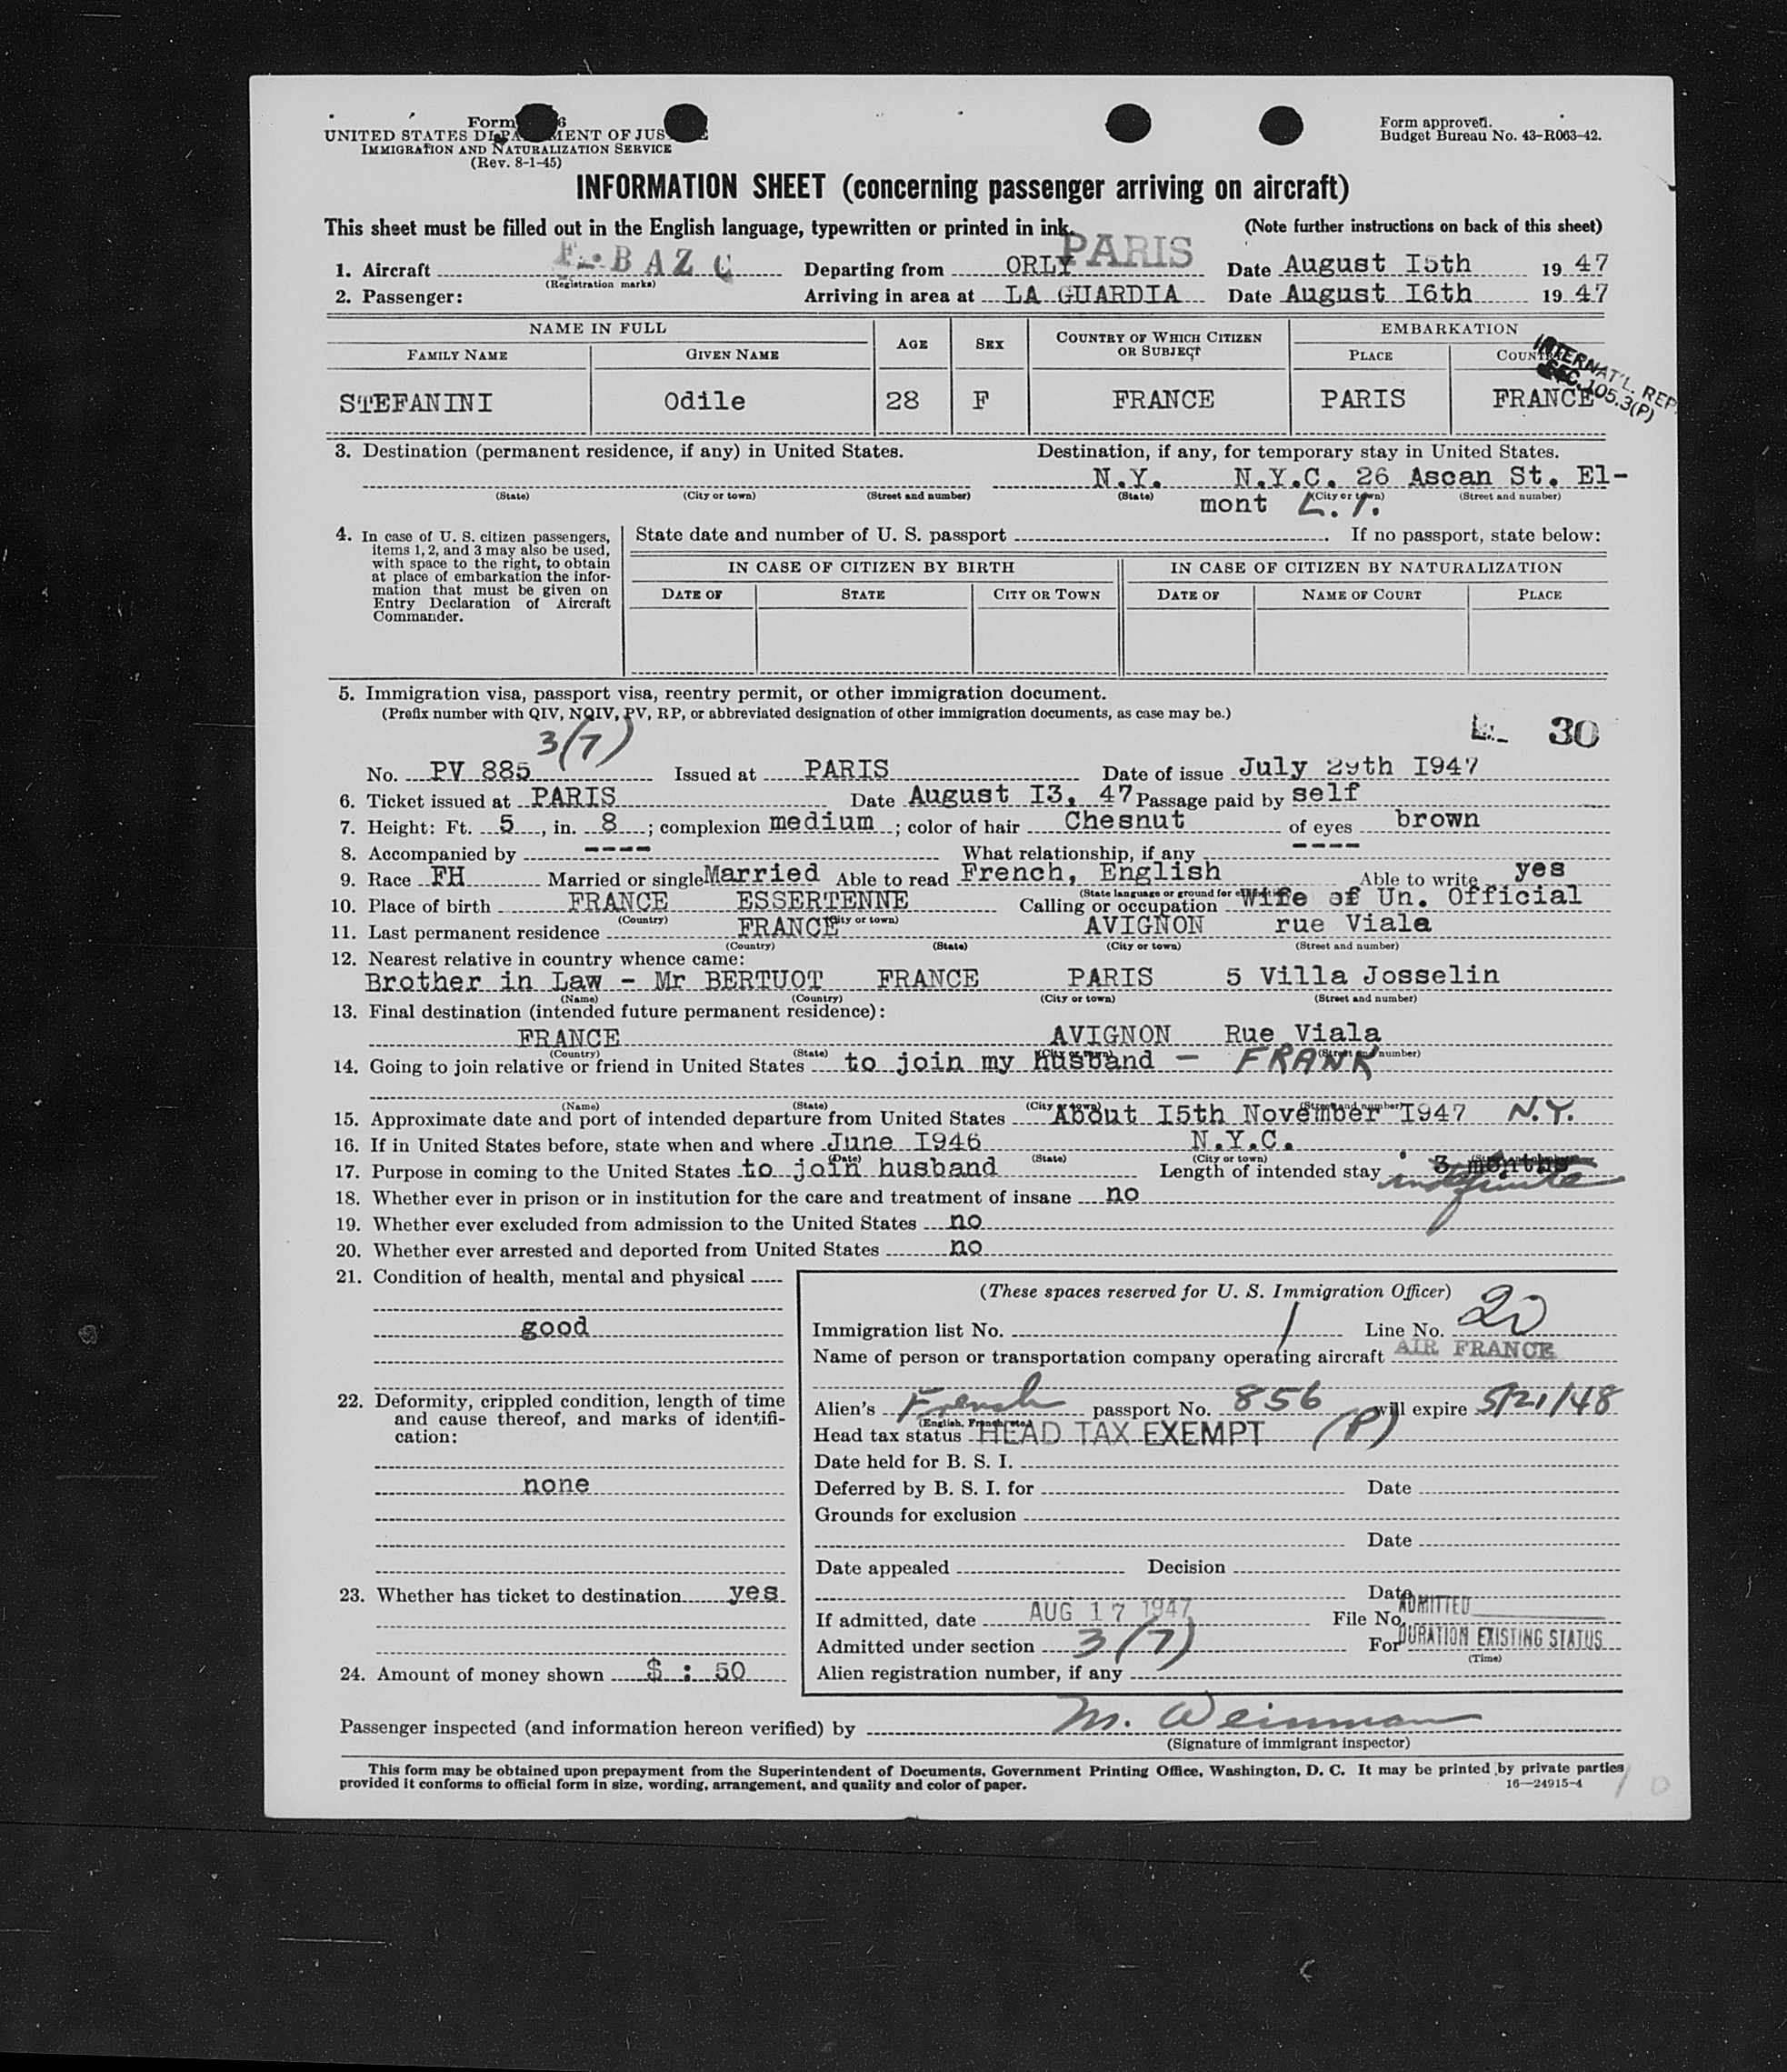 Form 6
UNITED STATES DEPARTMENT OF JUS
IMMIGRATION AND NATURALIZATION SERVICE
(Rev. 8-1-45)
Form approved.
Budget Bureau No. 43-R063-42.
INFORMATION SHEET (concerning passenger arriving on aircraft)
This sheet must be filled out in the English language, typewritten or printed in ink. (Note further instructions on back of this sheet)
1. Aircraft F-BAZC Departing from ORLY PARIS Date August I5th 19 47
(Registration marks)
2. Passenger: Arriving in area at LA GUARDIA Date August I6th 19 47
NAME IN FULL AGE SEX COUNTRY OF WHICH CITIZEN OR SUBJECT EMBARKATION
FAMILY NAME GIVEN NAME PLACE COUNTRY
INTERNAT'L. REP.
SEC. 105.3(P)
STEFANINI Odile 28 F FRANCE PARIS FRANCE
3. Destination (permanent residence, if any) in United States. Destination, if any, for temporary stay in United States.
N.Y. N.Y.C. 26 Ascan St. El-
(State) (City or town) (Street and number) (State) (City or town) (Street and number)
mont L.I.
4. In case of U. S. citizen passengers, items 1, 2, and 3 may also be used, with space to the right, to obtain at place of embarkation the information that must be given on Entry Declaration of Aircraft Commander.
State date and number of U. S. passport . If no passport, state below:
IN CASE OF CITIZEN BY BIRTH IN CASE OF CITIZEN BY NATURALIZATION
DATE OF STATE CITY OR TOWN DATE OF NAME OF COURT PLACE
5. Immigration visa, passport visa, reentry permit, or other immigration document.
(Prefix number with QIV, NQIV, PV, RP, or abbreviated designation of other immigration documents, as case may be.)
3(7) 30
No. PV 885 Issued at PARIS Date of issue July 29th I947
6. Ticket issued at PARIS Date August I3, 47 Passage paid by self
7. Height: Ft. 5, in. 8; complexion medium; color of hair Chesnut of eyes brown
8. Accompanied by ---- What relationship, if any ----
9. Race FH Married or single Married Able to read French, English Able to write yes
(State language or ground for exemption)
10. Place of birth FRANCE ESSERTENNE Calling or occupation Wife of Un. Official
(Country) (City or town)
11. Last permanent residence FRANCE AVIGNON rue Viala
(Country) (State) (City or town) (Street and number)
12. Nearest relative in country whence came:
Brother in Law - Mr BERTUOT FRANCE PARIS 5 Villa Josselin
(Name) (Country) (City or town) (Street and number)
13. Final destination (intended future permanent residence):
FRANCE AVIGNON Rue Viala
(Country) (State) (City or town) (Street and number)
14. Going to join relative or friend in United States to join my husband - FRANK
(Name) (State) (City or town) (Street and number)
15. Approximate date and port of intended departure from United States About I5th November I947 N.Y.
16. If in United States before, state when and where June I946 N.Y.C.
(Date) (State) (City or town) (Street and number)
17. Purpose in coming to the United States to join husband Length of intended stay 3 months indefinite
18. Whether ever in prison or in institution for the care and treatment of insane no
19. Whether ever excluded from admission to the United States no
20. Whether ever arrested and deported from United States no
21. Condition of health, mental and physical
good
22. Deformity, crippled condition, length of time and cause thereof, and marks of identification:
none
23. Whether has ticket to destination yes
24. Amount of money shown $ : 50
(These spaces reserved for U. S. Immigration Officer)
Immigration list No. 1 Line No. 20
Name of person or transportation company operating aircraft AIR FRANCE
Alien's French passport No. 856 will expire 5/21/48
(English, French, etc.)
Head tax status HEAD TAX EXEMPT (P)
Date held for B. S. I.
Deferred by B. S. I. for Date
Grounds for exclusion
Date
Date appealed Decision
Date
If admitted, date AUG 17 1947 File No. ADMITTED
Admitted under section 3(7) For DURATION EXISTING STATUS
(Time)
Alien registration number, if any
Passenger inspected (and information hereon verified) by M. Weinman
(Signature of immigrant inspector)
This form may be obtained upon prepayment from the Superintendent of Documents, Government Printing Office, Washington, D. C. It may be printed by private parties
provided it conforms to official form in size, wording, arrangement, and quality and color of paper. 16—24915-4